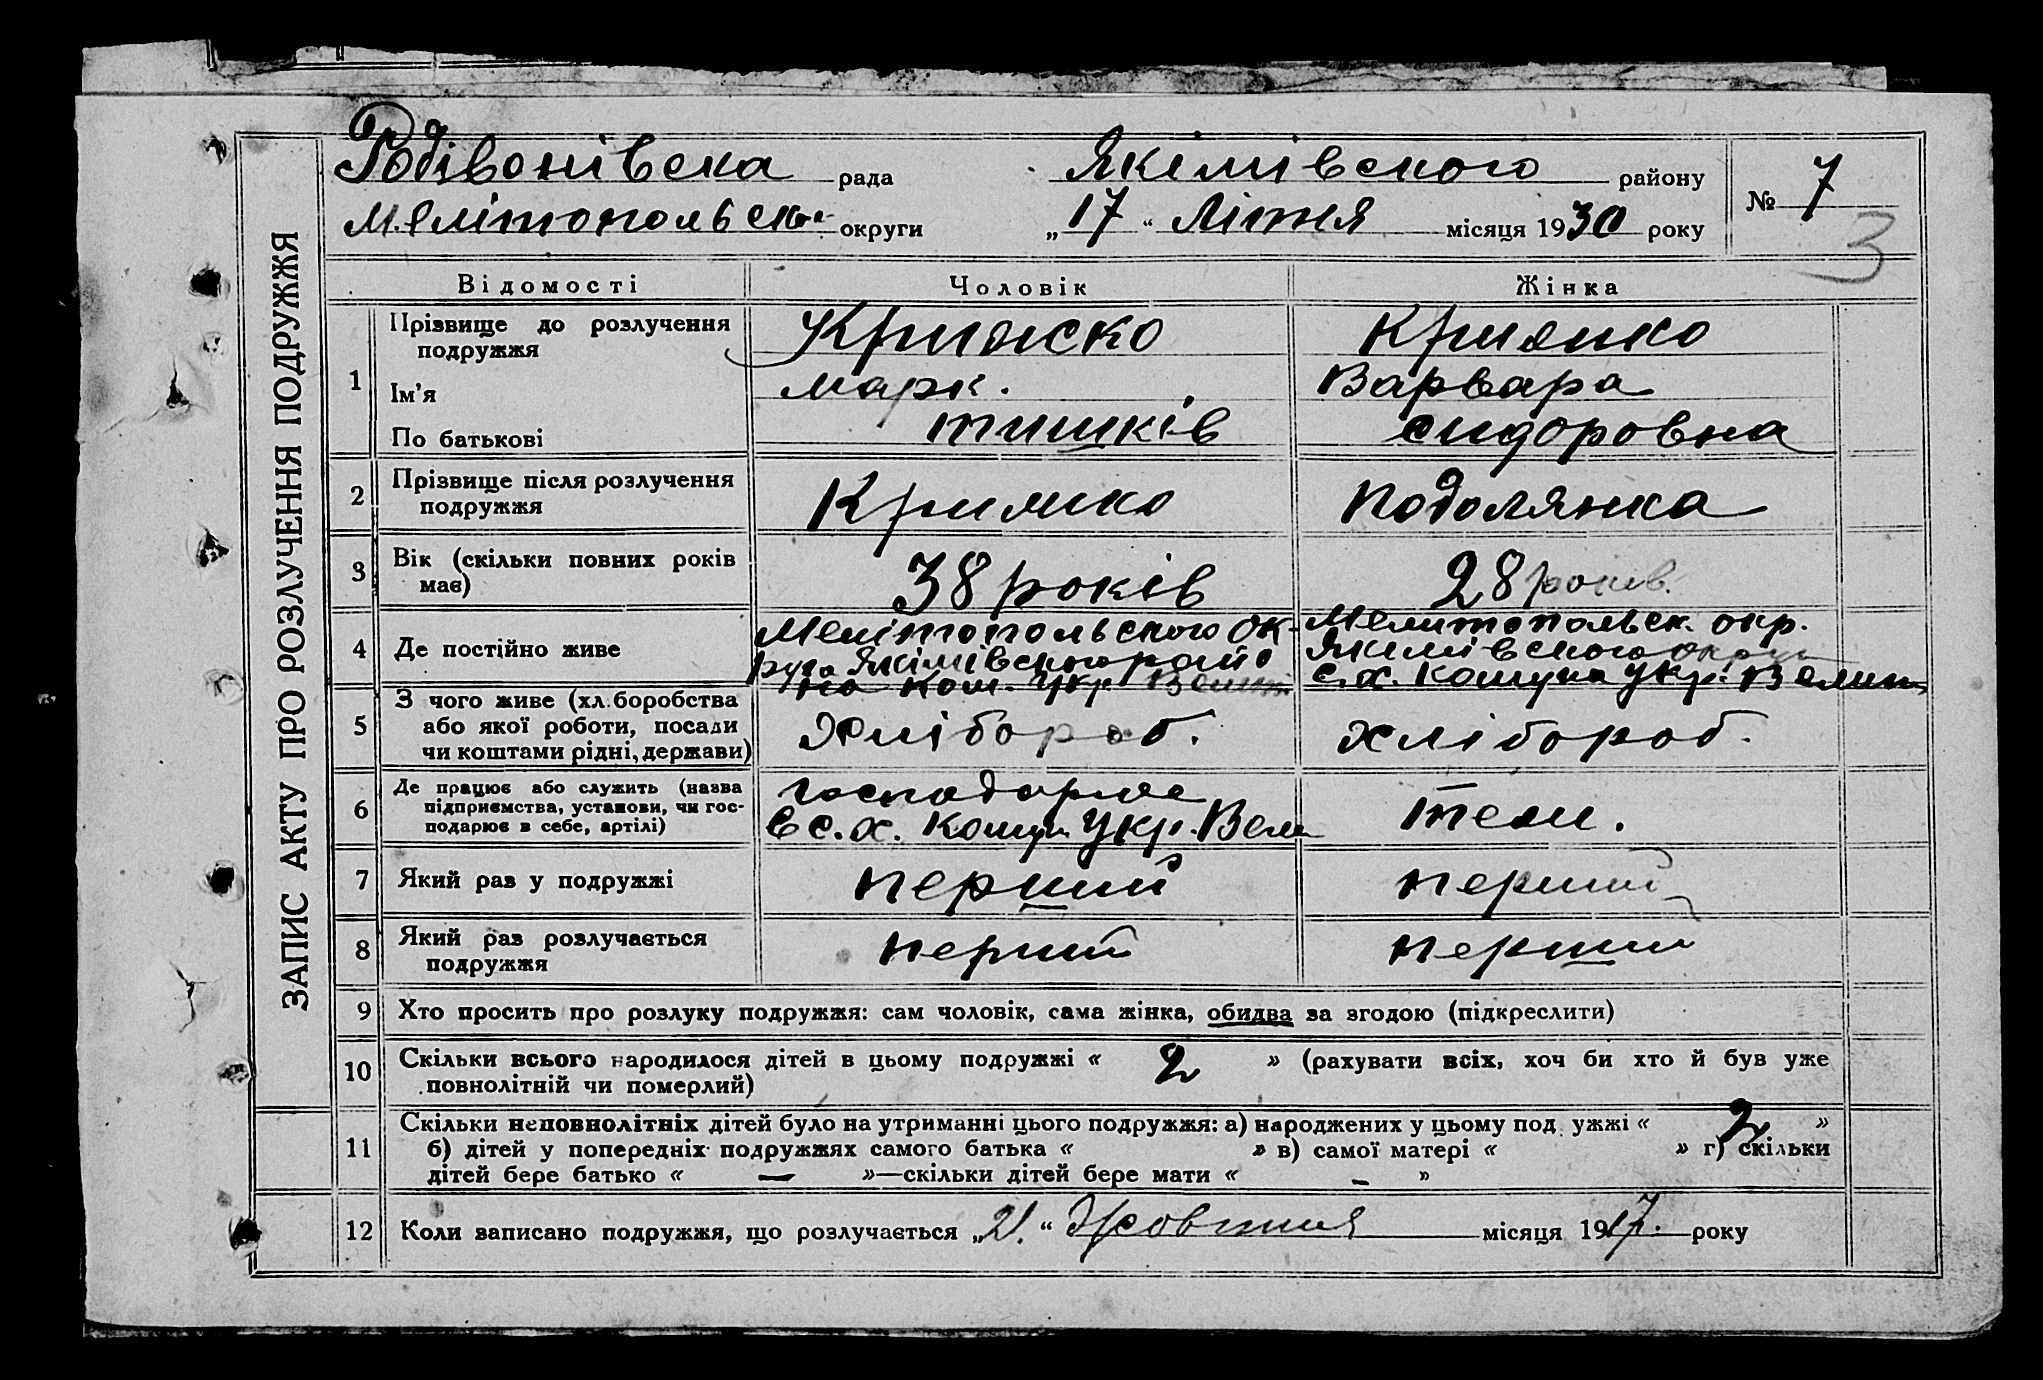 ЗАПИС АКТУ ПРО РОЗЛУЧЕННЯ ПОДРУЖЖЯ
Родівонівска рада Якімівского району № 7
Мелітопольско округи „17“ Літня місяця 1930 року
3
Відомості Чоловік Жінка
1 Прізвище до розлучення подружжя
Ім'я Марк. Варвара
По батькові тишків Сидоровна
2 Прізвище після розлучення подружжя Подолянка
3 Вік (скільки повних років має) 38 років 28 років.
4 Де постійно живе
Мелітопольского ок- Мелитопольск. окр.
руга Якімівского райо Якимівского
на ком. Укр. с.х. Комуна Укр.
5 З чого живе (хл.боробства
або якої роботи, посади
чи коштами рідні, держави) Хлібороб. Хлібороб.
6 Де працює або служить (назва
підприємства, установи, чи гос-
подарює в себе, артілі)
господарює
в с.х. Комун Укр.
7 Який раз у подружжі перший перший
8 Який раз розлучається
подружжя перший перший
9 Хто просить про розлуку подружжя: сам чоловік, сама жінка, обидва за згодою (підкреслити)
10 Скільки всього народилося дітей в цьому подружжі « 2 » (рахувати всіх, хоч би хто й був уже
повнолітній чи померлий)
11 Скільки неповнолітніх дітей було на утриманні цього подружжя: а) народжених у цьому под ужжі « 2 »
б) дітей у попередніх подружжях самого батька « » в) самої матері « » г) скільки
дітей бере батько « — »—скільки дітей бере мати « – »
12 Коли записано подружжя, що розлучається „21.“ Жовтня місяця 1917. року